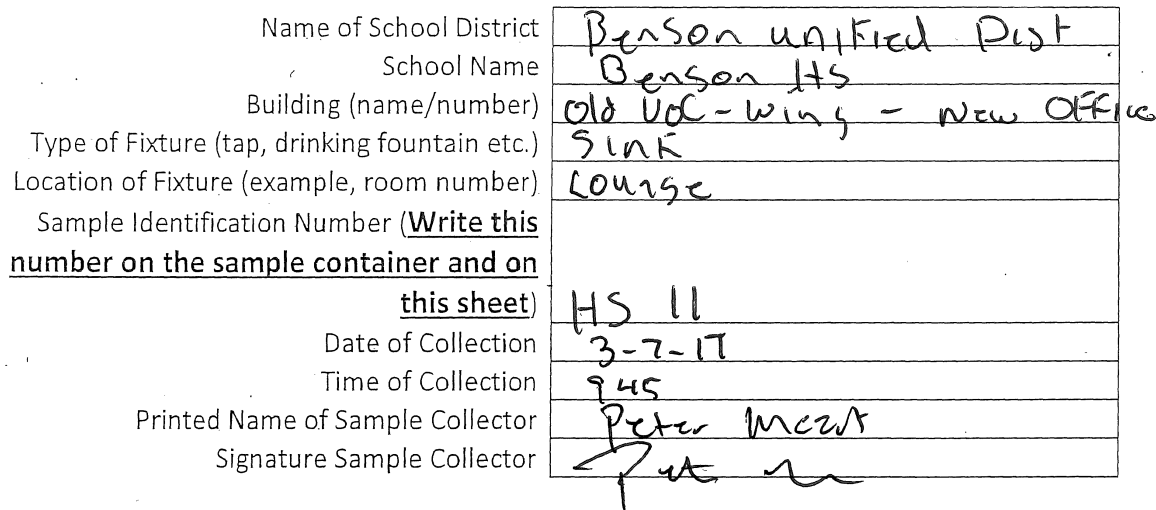 Name of School District Benson unified Dist
School Name Benson HS
Building (name/number) Old VOC - Wing - New Office
Type of Fixture (tap, drinking fountain etc.) Sink
Location of Fixture (example, room number) Lounge
Sample Identification Number (Write this
number on the sample container and on
this sheet) HS 11
Date of Collection 3-7-17
Time of Collection 945
Printed Name of Sample Collector Peter
Signature Sample Collector